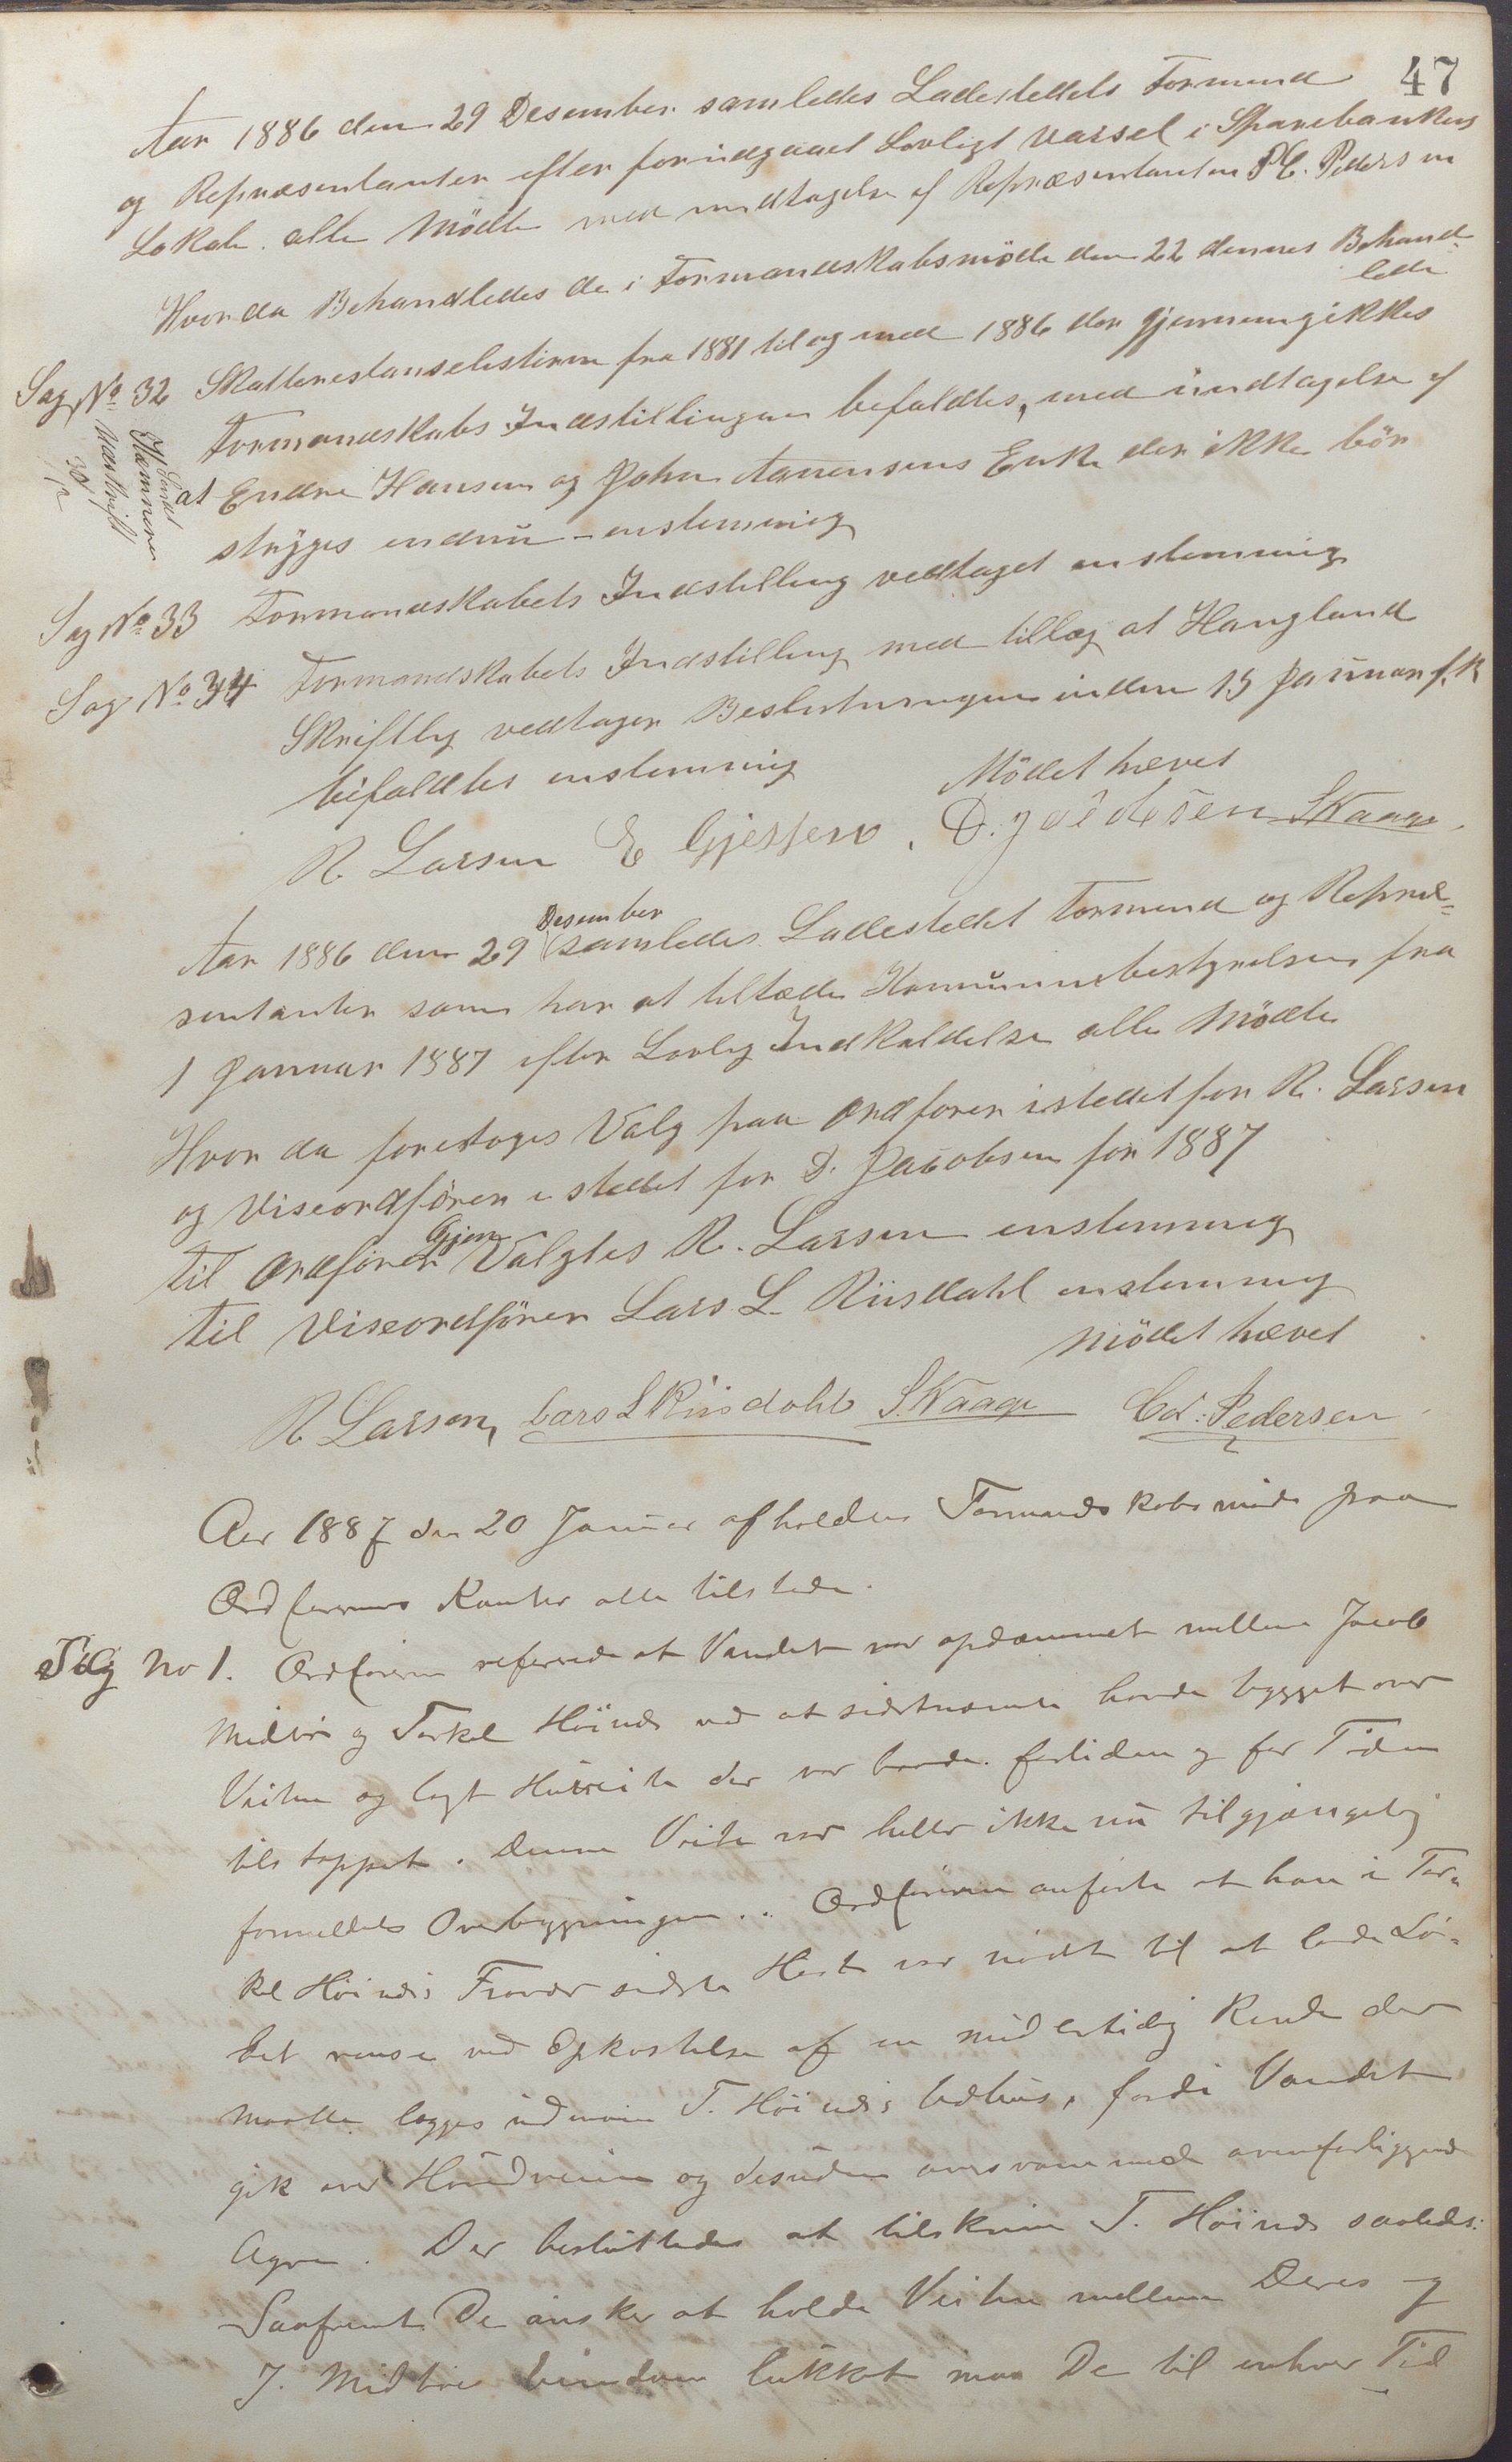 47
Aar 1886 den 29 Desember samledes Ladestedets Formend
og Repræsentanter efter forudgaaet Lovligt Varsel i Sparebankens
Lokale. alle Mödte med undtagelse af Repræsentanten P C. Pedersen
Hvor da Behandledes de i Formandskabsmöde den 22 dennes Behand-
lede
Sag No 32 Skatterestanselisterne fra 1881 til og med 1886 der gjennemgikkes
Formandskabs Indstillingen befaldtes, med undtagelse af
at Endre Hansen og John Aanensens Enke der ikke bör
strÿges endnu - enstemmig
Sendt
Kæmneren
Udskrift
30/12
Sag No 33 Formandskabets Indstilling vedtaget enstemmig
Sag No 34 Formandskabets Indstilling med tillæg at Haugland
Skriftlig vedtager Beslutningen inden 15 Januar f. k
bifaldtes enstemmig Mödet hævet
R Larsen E Gjessen. D. Jacobsen SKaage
Aar 1886 den 29 Desember samledes Ladestedet Formend og Repræ-
sentanter som har at tiltæde Kommunebestyrelsen fra
1 Januar 1887 efter Lovlig Indkaldelse alle Mödte
Hvor da foretoges Valg paa Ordförer istedet for R. Larsen
og Viseordförer istedet for D. Jacobsen for 1887
Til Ordförer Gjen Valgtes R. Larsen enstemmig
Til Viseordförer Lars L. Riisdahl enstemmig
Mödet hævet
R Larsen, Lars L Riisdahl S.Kaage Ed. Pedersen
Aar 1887 den 20 Januar afholdtes Formandskabsmöde paa
Ordförerens Kontor alle tilstede.
Sag No 1. Ordföreren refererede at Vandet var opdæmmet mellem Jacob
Midbö og Torkel Höinæs ved at sidstnævnte havde bygget over
Veiten og lagt der var baade for liden og for Tiden
tilstoppet. Denne Veite var heller ikke nu tilgjængelig
formedelst Overbygningen. Ordföreren anförte at han i Tor-
kel Höinæs Fravær sidste Höst var nödt til at lade Lö-
bet rense ved Opkostelse af en midlertidig Rende der
maatte lægges udenom T. Höinæs Vedhus, fordi Vandet
gik over Hovedveien og desuden oversvömmede ovenforliggende
Agre. Der besluttedes at tilskrive T. Höinæs saaledes:
Saafremt De önsker at holde Veiten mellem Deres og
J. Midbös Eiendom lukket maa De til enhver Tid